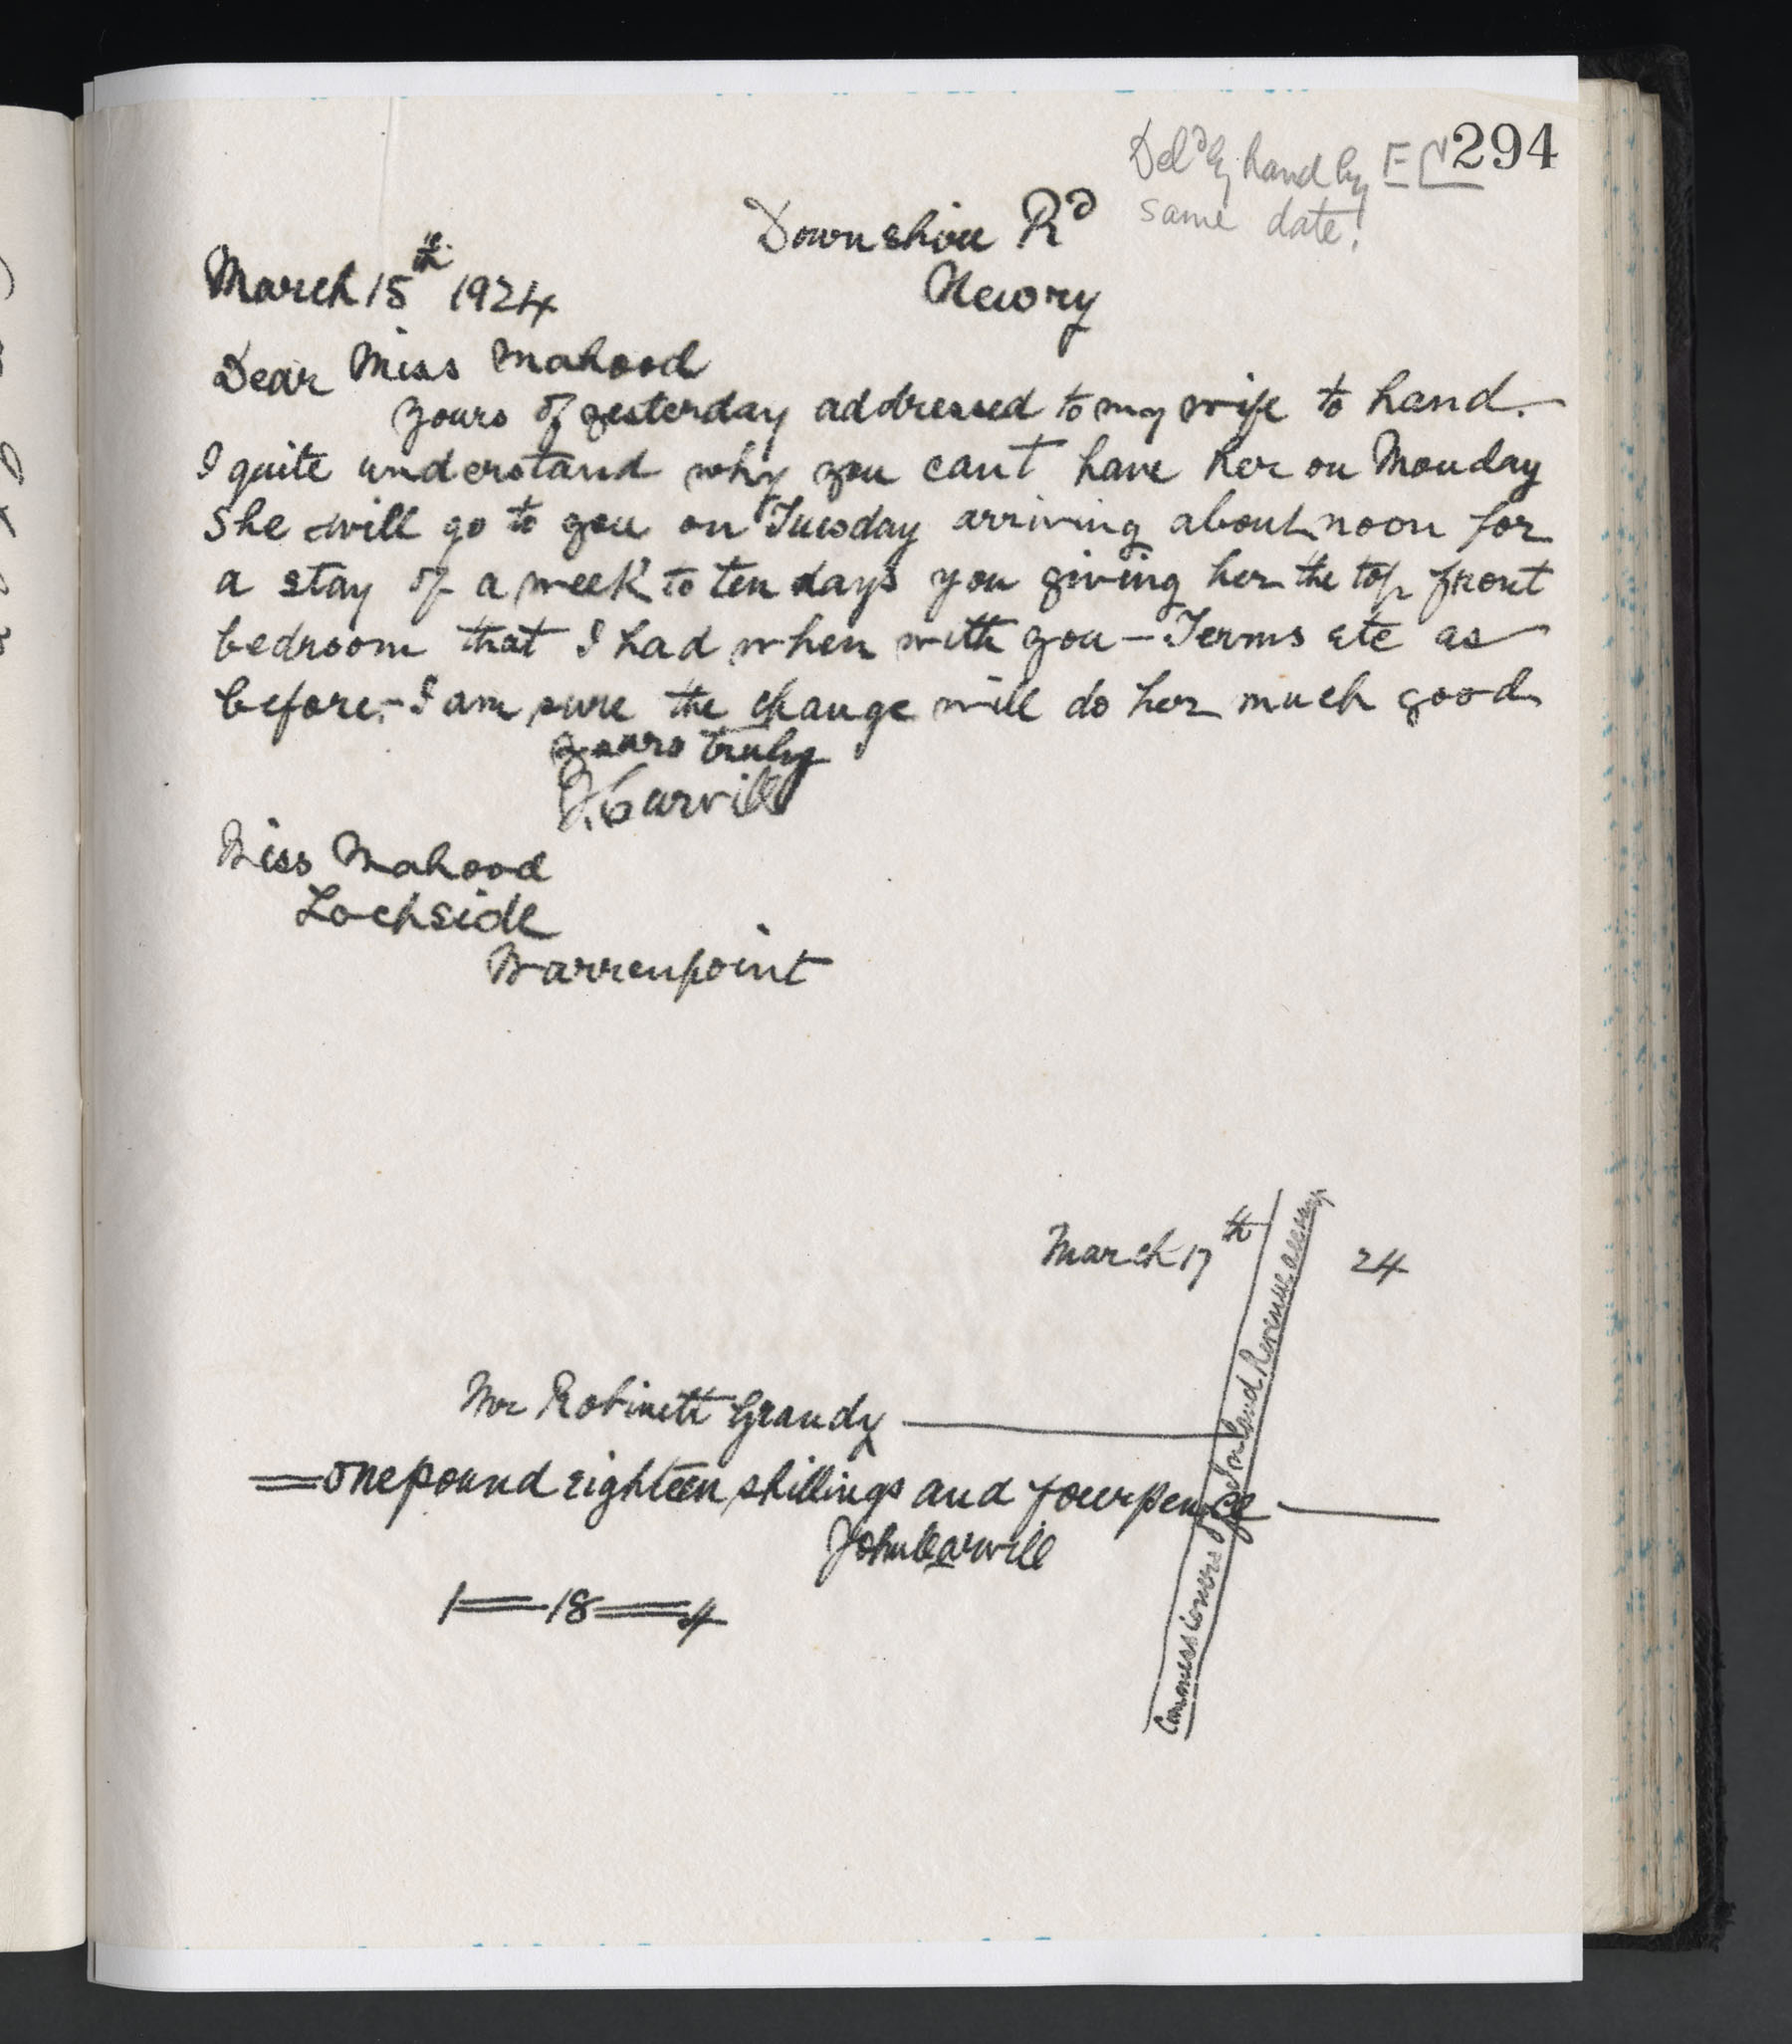 294
Del'd by hand by
same date!
Downshire Rd
Newry
March 15th 1924
Dear Miss Mahood
yours of yesterday addressed to my wife to hand.
I quite understand why you cant have her on Monday
She will go to you on Tuesday arriving about noon for
a stay of a week to ten days you giving her the top front
bedroom that I had when with you — Terms etc as
before. - I am sure the change will do her much good
yours truly
J. Carvill
Miss Mahood
Lochside
Warrenpoint
March 17th 24
Mr Robinett Grandy
= one pound eighteen shillings and fourpence
John Carvill
1 = 18 = 4
Commissioners of Inland Revenue